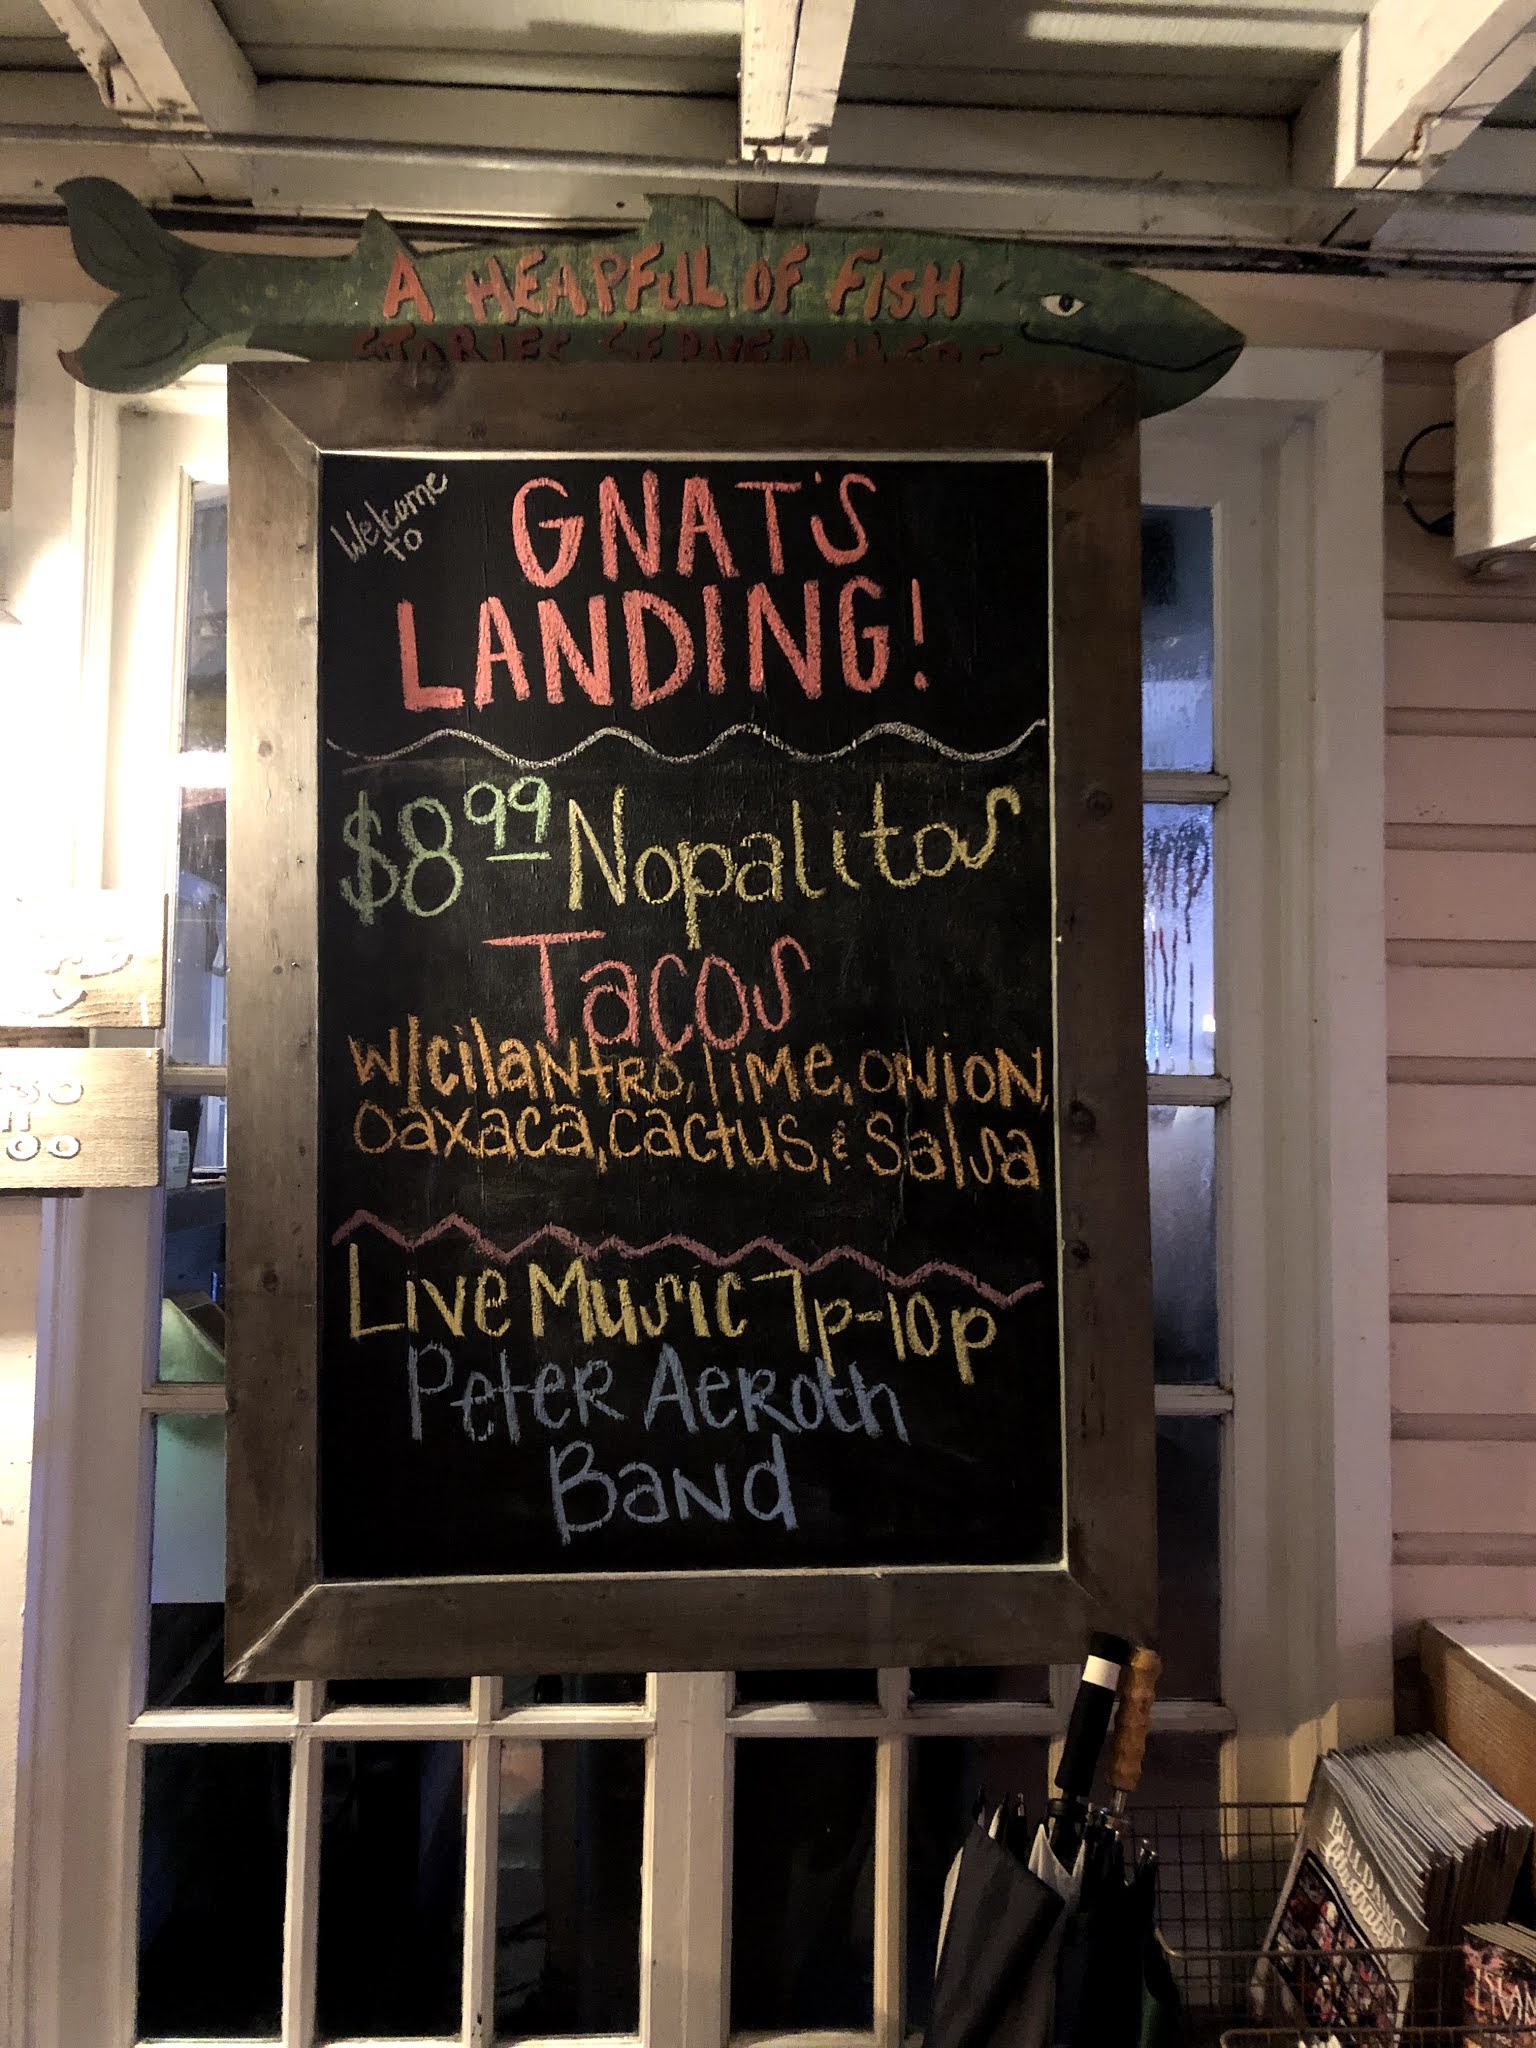 A HEAPFUL OF FISH
STORIES SERVED HERE
Welcome
to
GNAT'S
LANDING!
$8.99 Nopalitos
Tacos
w/cilantro, lime, onion,
oaxaca, cactus, & salsa
Live Music 7p-10p
Peter Aeroth
Band